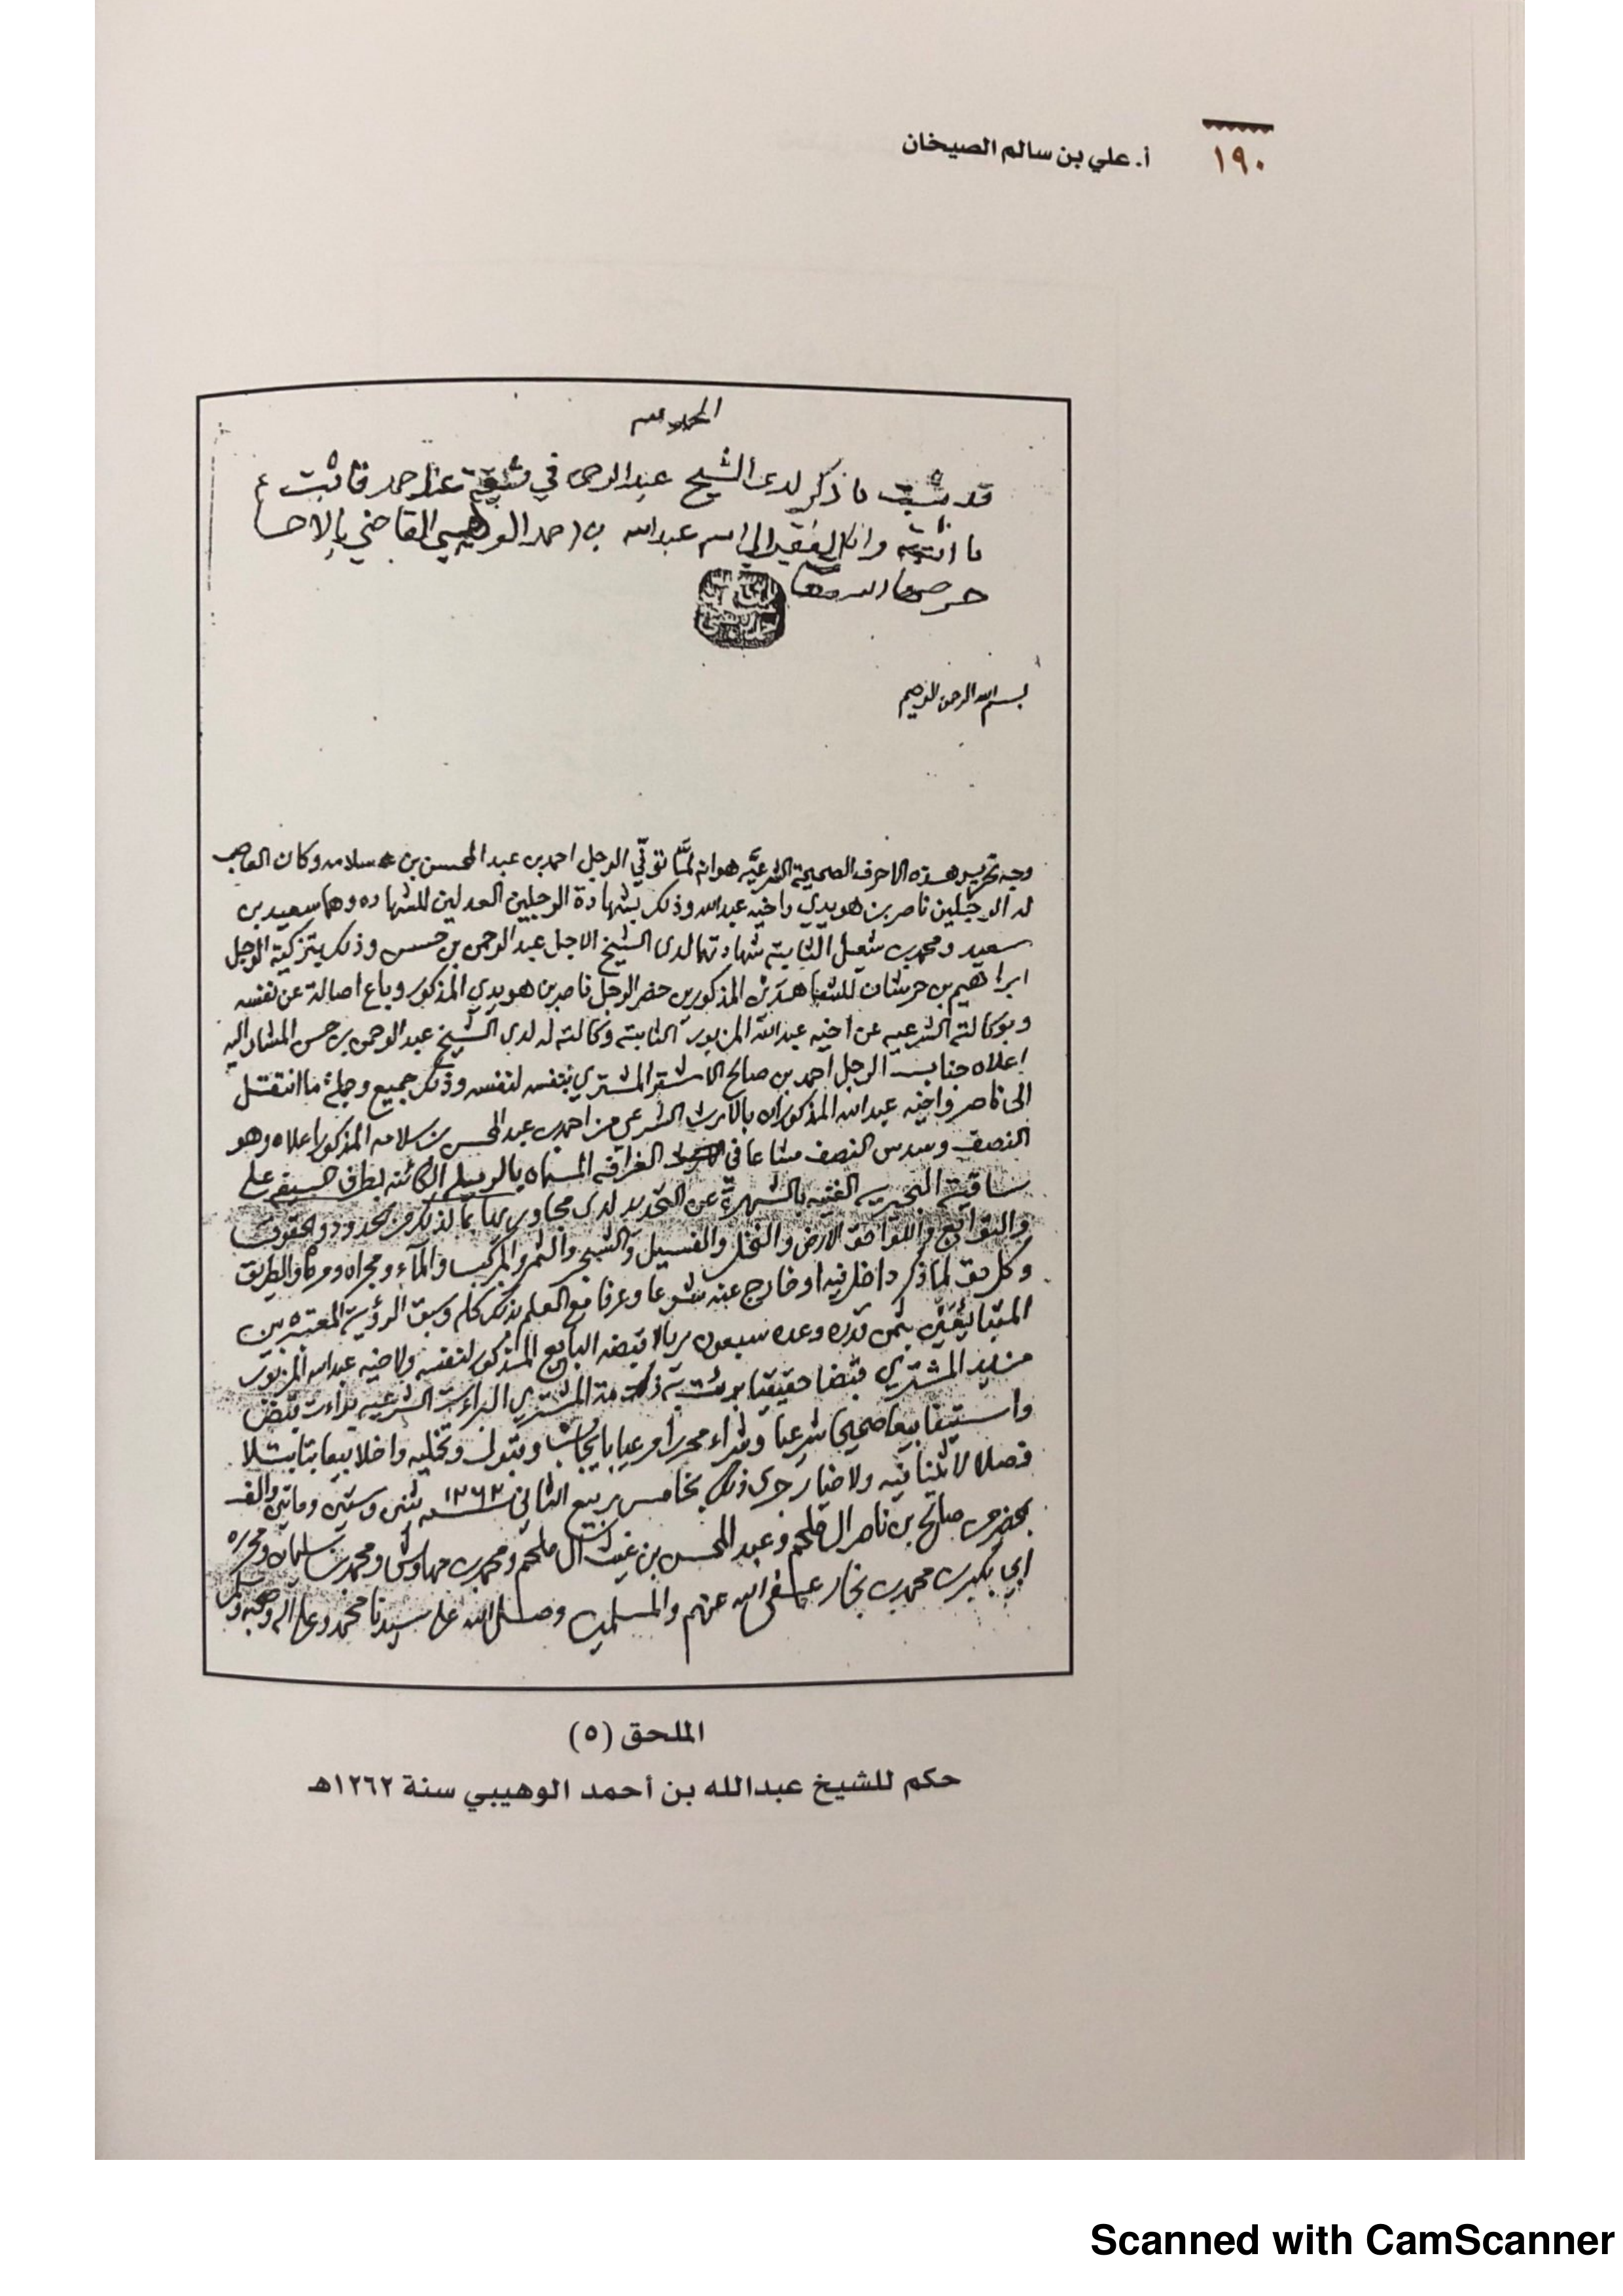 ١٩٠
أ. علي بن سالم الصيخان
الحمد لله
قد ثبت ما ذكر لدى الشيخ عبدالرحمن في قاثبت
ما اثبته وانا الفقير الى الله عبدالله بن احمد الوهيبي القاضي بالاحسا
حرصها الله
بسم الله الرحمن الرحيم
وجه تحرير هذه الاحرف الصحيحة الشرعيه هو انه لما توفي الرجل احمد بن عبد المحسن بن سلامه وكان العاصب
له الرجلين ناصر بن هويدي واخيه عبدالله وذلك بشهادة الرجلين العدلين للشهاده وهما سعيد بن
سعيد ومحمد بن شعيل الثابته شهادتهما لدى الشيخ الاجل عبد الرحمن بن حسن وذلك بتزكية الرجل
ابراهيم بن حرشان للشاهدين المذكورين حضر الرجل ناصر بن هويدي المذكور وباع اصالة عن نفسه
وبوكالته الشرعيه عن اخيه عبدالله المزبور الثابته وكالته له لدى الشيخ عبد الرحمن بن حسن المشار اليه
اعلاه جناب الرجل احمد بن صالح الاشقر المشتري بنفسه لنفسه وذلك جميع وجملة ما انتقل
الى ناصر واخيه عبدالله المذكوران بالارث الشرعي من احمد بن عبد المحسن بن سلامه المذكور اعلاه وهو
النصف وسدس النصف مشاعا في الغرافه المسماه بالرميله الكائنه بطرف على
ساقية الغنيه بالشهرة عن التحديد لدى مجاوريها بما لذلك من الحدود والحقوق
والتوابع واللواحق الارض والنخل والفسيل والشجر والثمر والمركب والمآء ومجراه ومرقاه والطريق
وكل حق لما ذكر داخل فيه او خارج عنه شرعا وعرفا مع العلم بذلك كله وسبق الرؤية المعتبره بين
المتبايعين بثمن قدره وعده سبعون ريالا قبضه البايع المذكور لنفسه ولاخيه عبدالله المزبور
من يد المشتري قبضا حقيقيا برئت به ذمة المشتري البراءة الشرعيه براءت قبض
واستيفا بيعا صحيحا شرعيا وشراء محررا مرعيا بايجاب وقبول وتخليه واخلا بيعا بتا بتلا
فصلا لا ثنيا فيه ولا خيار جرى ذلك بخامس ربيع الثاني سنه ١٢٦٢ ثنتين وستين ومأتين والف
بحضرت صالح بن ناصر ال ملحم وعبد المحسن بن غيث ال ملحم ومحمد بن مهاوش ومحمد بن سليمان ومحرره
ابي بكر بن محمد بن نجار عفى الله عنهم والمسلمين وصلى الله على سيدنا محمد وعلى اله وصحبه وسلم
الملحق (٥)
حكم للشيخ عبدالله بن أحمد الوهيبي سنة ١٢٦٢هـ
Scanned with CamScanner